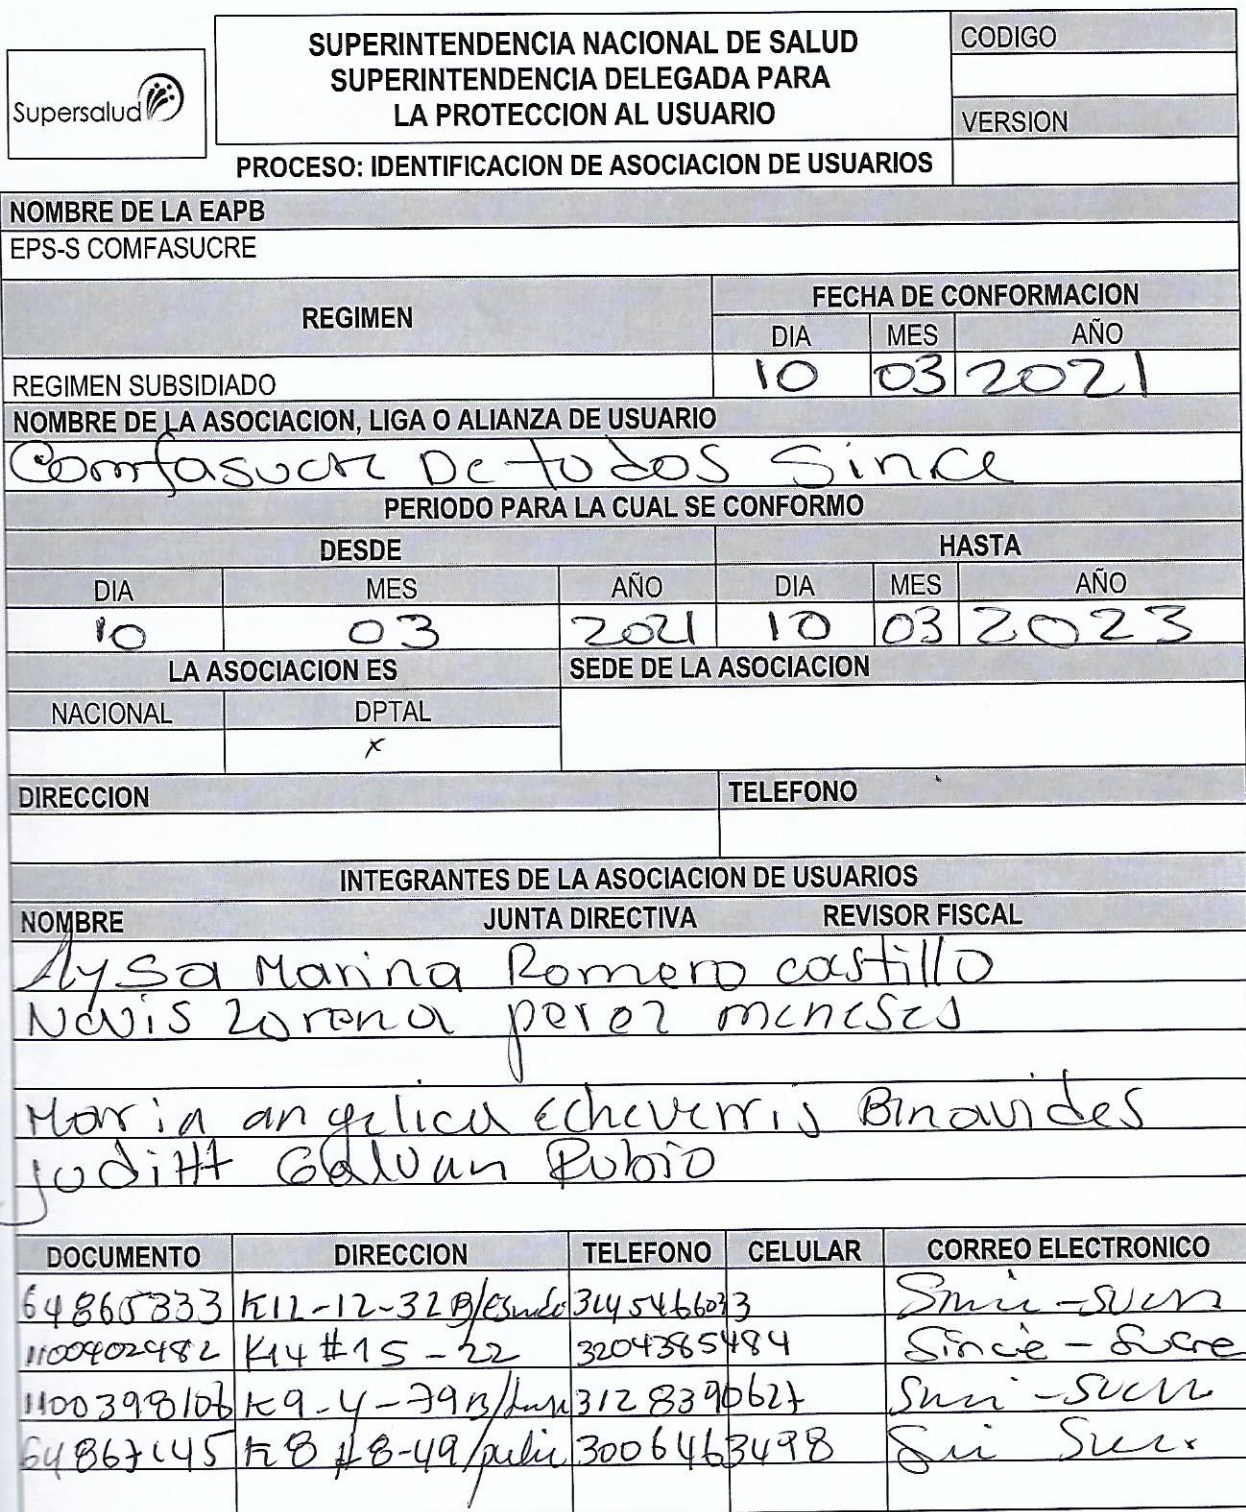 Supersalud
SUPERINTENDENCIA NACIONAL DE SALUD
SUPERINTENDENCIA DELEGADA PARA
LA PROTECCION AL USUARIO
PROCESO: IDENTIFICACION DE ASOCIACION DE USUARIOS
CODIGO
VERSION
NOMBRE DE LA EAPB
EPS-S COMFASUCRE
REGIMEN FECHA DE CONFORMACION
DIA MES AÑO
REGIMEN SUBSIDIADO 10 03 2021
NOMBRE DE LA ASOCIACION, LIGA O ALIANZA DE USUARIO
Comfasucre De todos Since
PERIODO PARA LA CUAL SE CONFORMO
DESDE HASTA
DIA MES AÑO DIA MES AÑO
10 03 2021 10 03 2023
LA ASOCIACION ES SEDE DE LA ASOCIACION
NACIONAL DPTAL
x
DIRECCION TELEFONO
INTEGRANTES DE LA ASOCIACION DE USUARIOS
NOMBRE JUNTA DIRECTIVA REVISOR FISCAL
Aysa Marina Romero castillo
Navis Lorena perez meneses
Maria angelica Echeverris Binavides
juditH Galvan Rubio
DOCUMENTO DIRECCION TELEFONO CELULAR CORREO ELECTRONICO
64865333 K12-12-32 B/ 3145466033
1100402482 K14 #15-22 3204385484 Since - Sucre
1100398106 K9-4-79 B/ 3128390627
64867145 K8 #8-49/ 3006463498